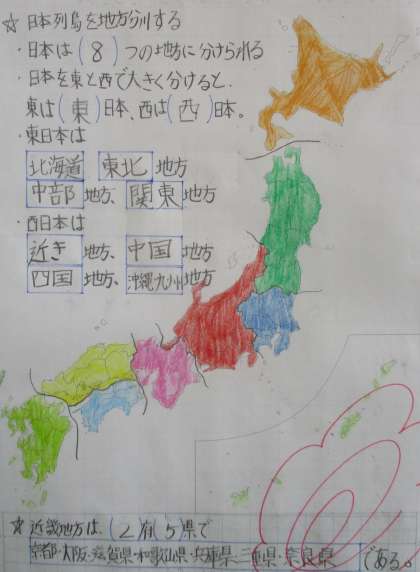 ☆ 日本列島を地方分けする
・日本は(8)つの地方に分けられる
・日本を東と西で大きく分けると、
東は(東)日本、西は(西)日本。
・東日本は
北海道 東北 地方
中部 地方、関東 地方
・西日本は
近き 地方、中国 地方
四国 地方、沖縄九州 地方
☆ 近畿地方は、(2)府(5)県で
京都・大阪・滋賀県・和歌山県・兵庫県・三重県・奈良県 である。